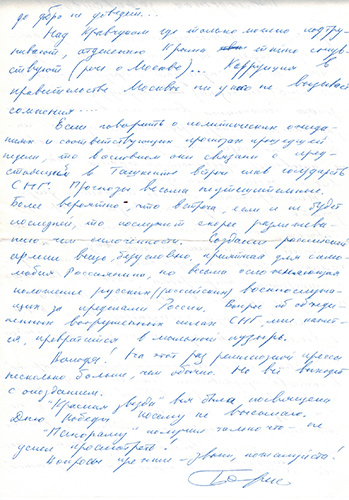 до добра не доведет...
Над Кравчуком где только можно подтру-
нивают, отделению Крыма втайне сочув-
ствуют (речь о Москве)... Коррупция в
правительстве Москвы ни у кого не вызывает
сомнения...
Если говорить о политических ожида-
ниях и соответствующих прогнозах прошедшей
недели, то в основном они связаны с пред-
стоящей в Ташкенте встречей глав государств
СНГ. Прогнозы весьма неутешительные.
Более вероятно, что встреча, если и не будет
последней, то послужит скорее размежева-
нию, чем сплоченности. Создание российской
армии вещь, безусловно, приятная для само-
любия Россиянина, но весьма осложняющая
положение русских (российских) военнослужа-
щих за пределами России. Вопрос об объеди-
ненных вооруженных силах СНГ, мне кажет-
ся, превратился в мыльный пузырь.
Володя! На этот раз религиозной прессы
несколько больше, чем обычно. Но всё выходит
с опозданием.
"Красная звезда" вся была посвящена
Дню Победы посему не высылаю.
"Панораму" получил только что - не
успел просмотреть!
Вопросы, прения - звони, пожалуйста!
Борис